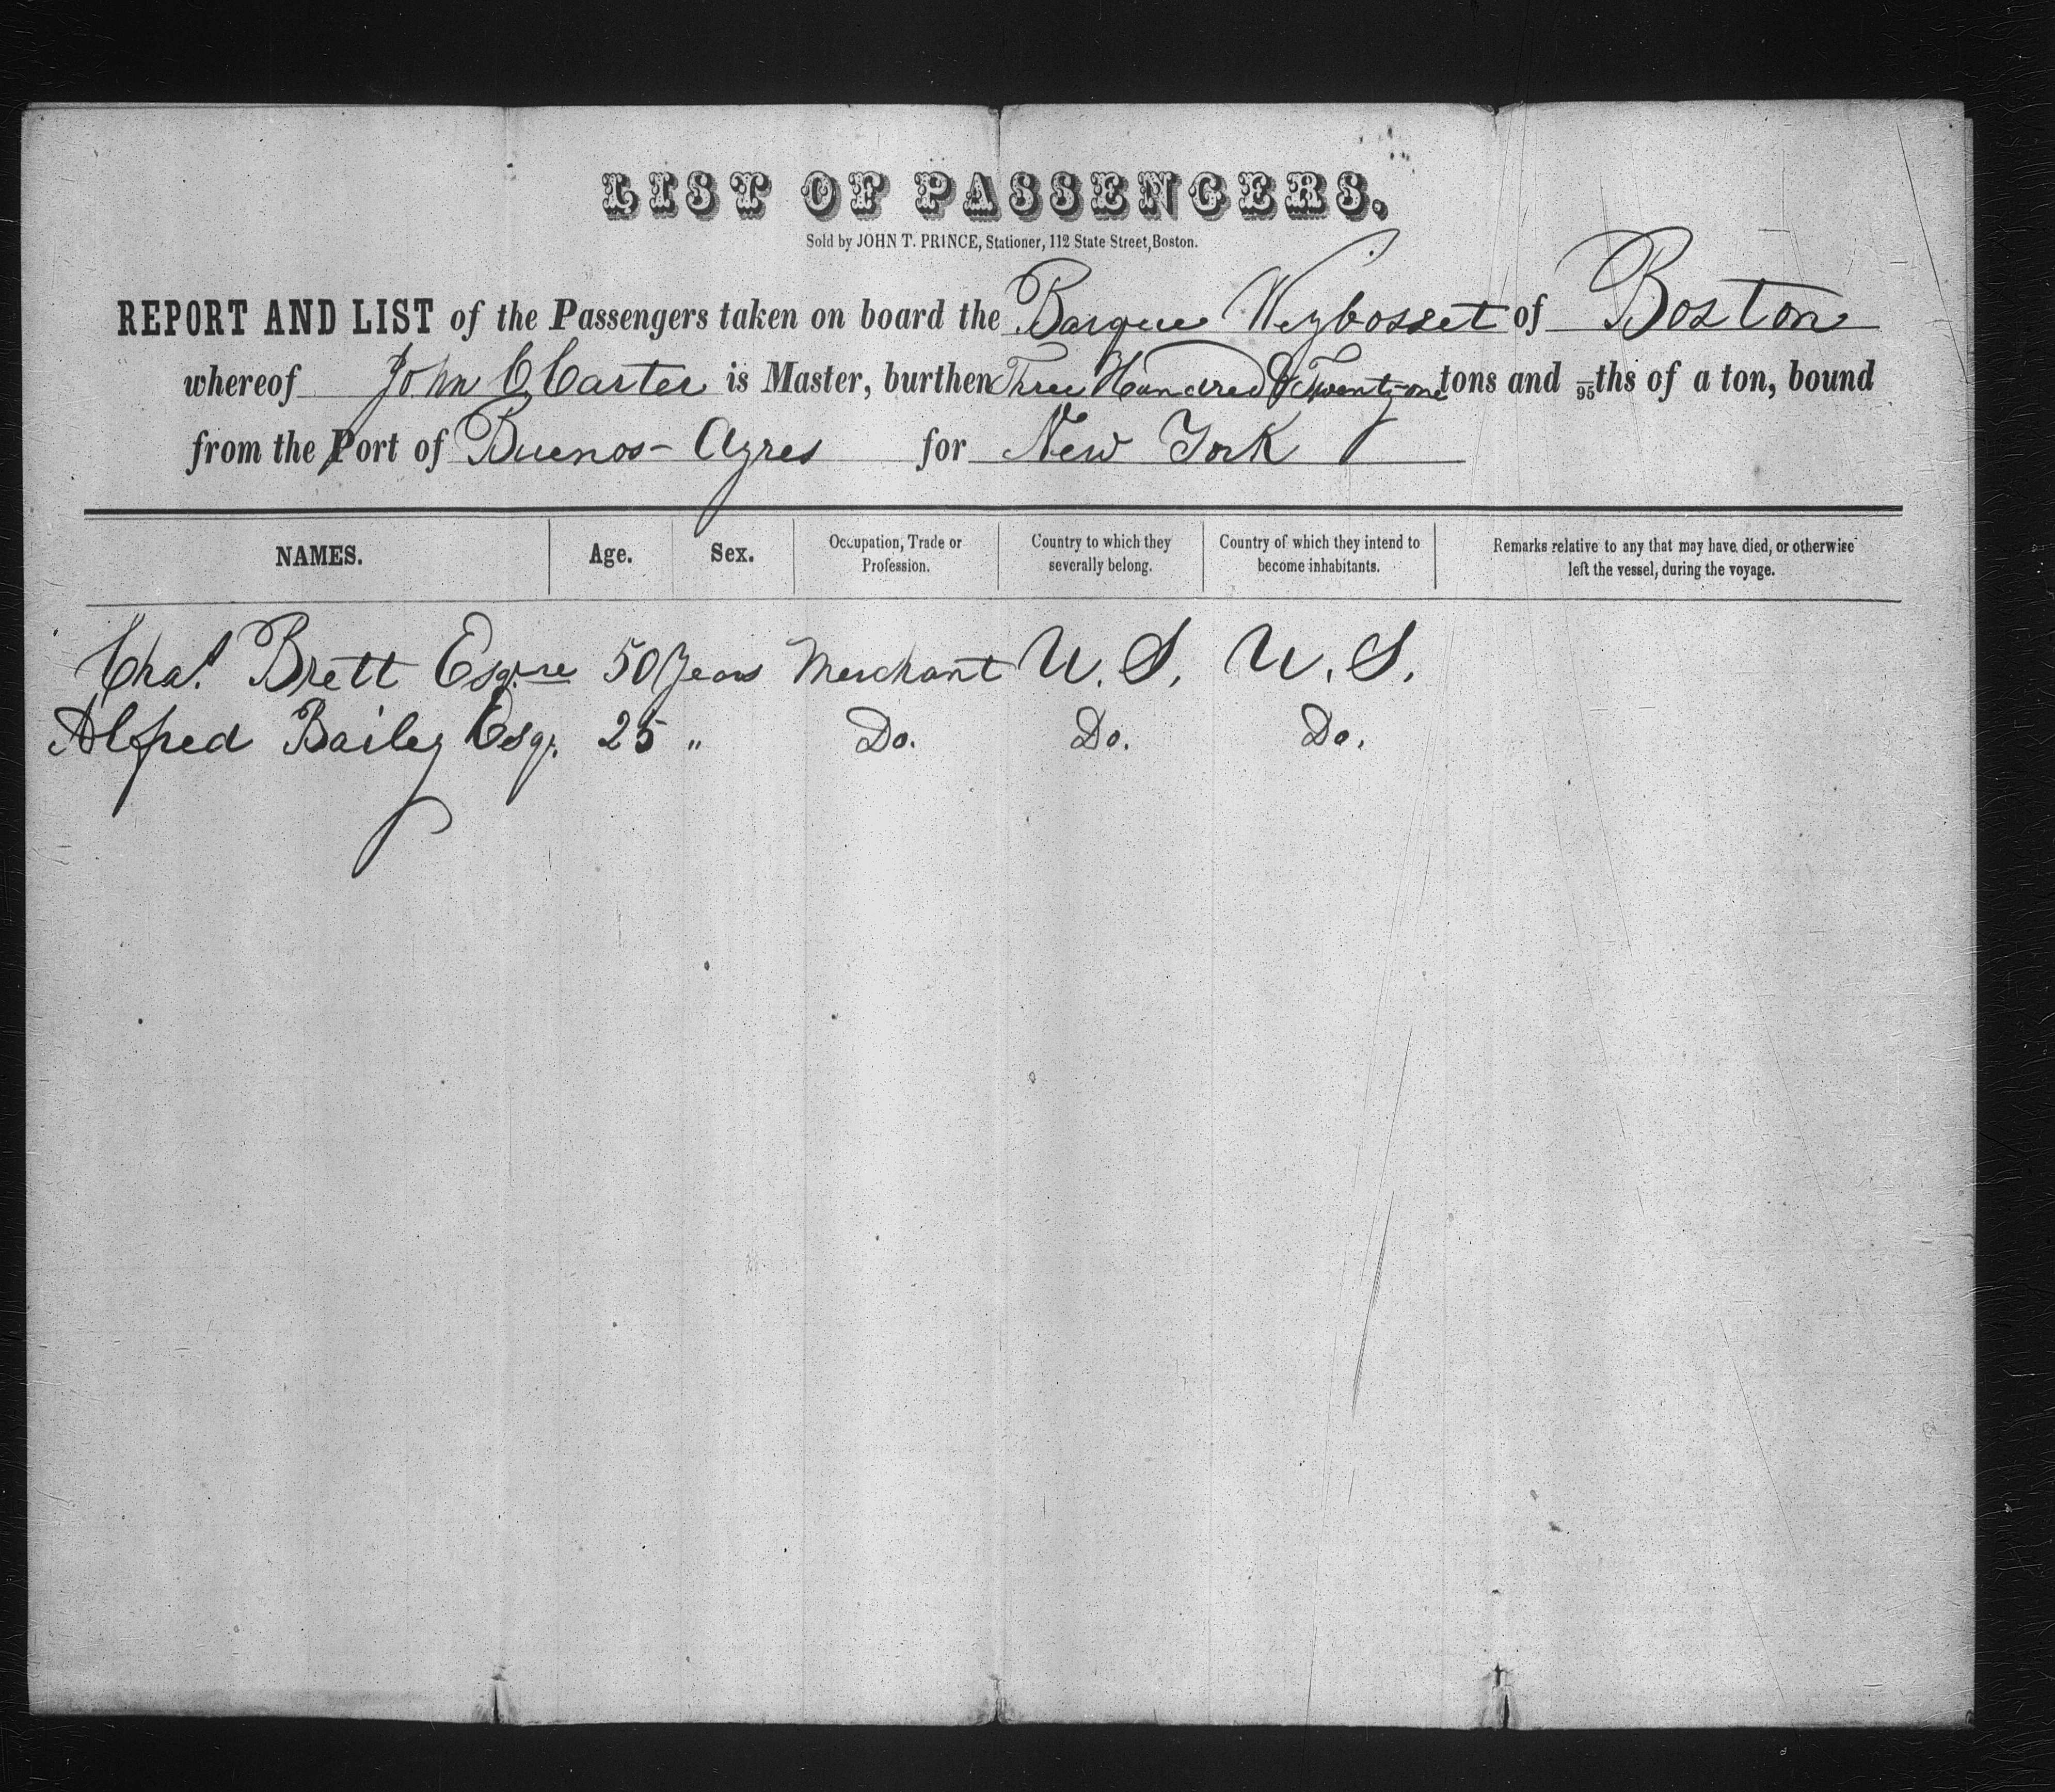 LIST OF PASSENGERS.
Sold by JOHN T. PRINCE, Stationer, 112 State Street, Boston.
REPORT AND LIST of the Passengers taken on board the Barque Weybosset of Boston
whereof John C Carter is Master, burthen Three Hundred & Twenty-one tons and /95ths of a ton, bound
from the Port of Buenos-Ayres for New York
NAMES. Age. Sex. Occupation, Trade or Profession. Country to which they severally belong. Country of which they intend to become inhabitants. Remarks relative to any that may have died, or otherwise left the vessel, during the voyage.
Chas. Brett Esqre 50 Years Merchant U. S. U. S.
Alfred Bailey Esqr. 25 " Do. Do. Do.